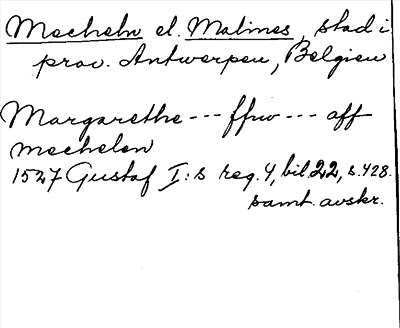 Mecheln el. Malines, stad i
prov. Antwerpen, Belgien
Margarethe --- ffrw --- aff
mechelen
1527 Gustaf I:s reg. 4, bil. 22, s. 428.
samt. avskr.